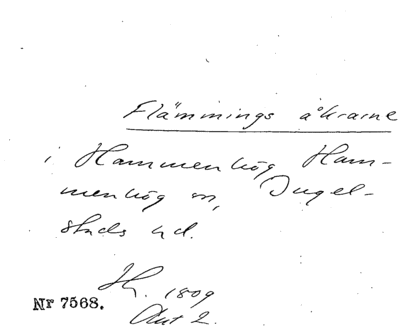 Flämmings åkrarne
i Hammenhög Ham-
menhög sn, Ingel-
stads hd.
Sk. 1809
Akt 2.
Nr 7568.